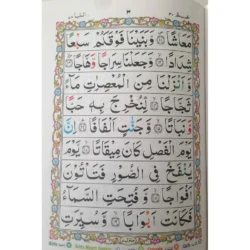 ٣
مَعَاشًا ۝ وَبَنَيْنَا فَوْقَكُمْ سَبْعًا
شِدَادًا ۝ وَجَعَلْنَا سِرَاجًا وَّهَّاجًا
وَّاَنْزَلْنَا مِنَ الْمُعْصِرٰتِ مَآءً
ثَجَّاجًا ۝ لِّنُخْرِجَ بِهٖ حَبًّا
وَّنَبَاتًا ۝ وَّجَنّٰتٍ اَلْفَافًا ۝ اِنَّ
يَوْمَ الْفَصْلِ كَانَ مِيْقَاتًا ۝ يَّوْمَ
يُنْفَخُ فِى الصُّوْرِ فَتَاْتُوْنَ
اَفْوَاجًا ۝ وَّفُتِحَتِ السَّمَآءُ
فَكَانَتْ اَبْوَابًا ۝ وَّسُيِّرَتِ